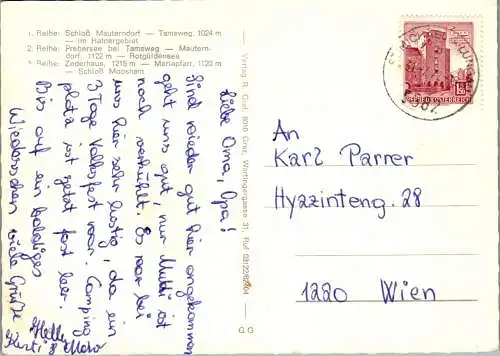 1. Reihe: Schloß Mauterndorf — Tamsweg, 1024 m
— Hafnergebiet
2. Reihe: Prebersee bei Tamsweg — Mautern-
dorf, 1122 m — Rotgüldensee
3. Reihe: Zederhaus, 1215 m — Mariapfarr, 1120 m
— Schloß Moosham
Verlag R. Graf, 8010 Graz, Wartingergasse 31, Ruf 03122/82404
GG
REPUBLIK ÖSTERREICH
Liebe Oma, Opa!
Sind wieder gut hier angekommen
geht uns gut, nur Mutti ist
noch verkühlt. Es war bei
uns hier sehr lustig, da ein
3 Tage Volksfest war. Camping
platz ist jetzt fast leer.
Bis auf ein baldiges
Wiedersehen viele Grüße
Helly
Kurti &
An
Karl Parrer
Hyazinteng. 28
1220 Wien